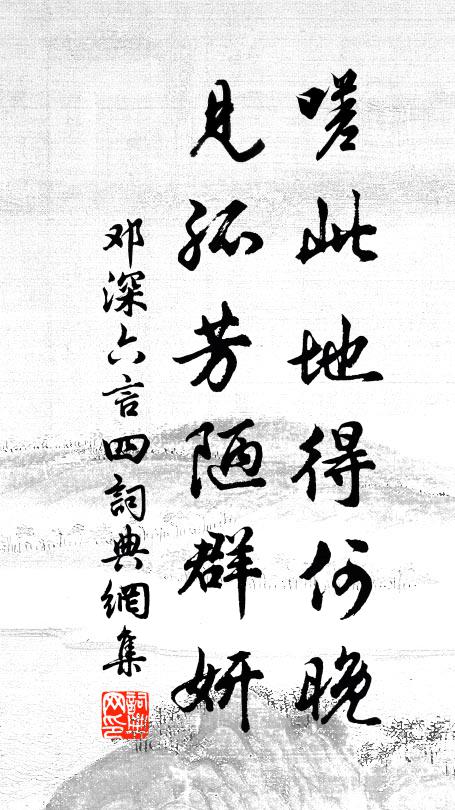 嗟此地得何晚
見孤芳陋群妍
邓深六言四詞典網集
詞典网印